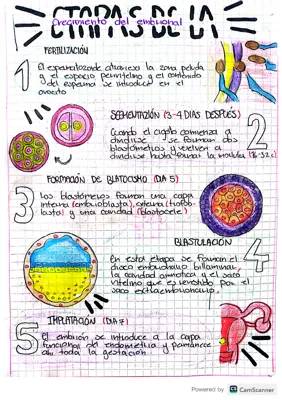 ETAPAS DE LA
Crecimiento del embrional
FERTILIZACIÓN
1
El espermatozoide atraviesa la zona pelucida
y el espacio perivitelino y el contenido
del esperma se introduce en el
ovocito
SEGMENTACIÓN (3-4 DIAS DESPUÉS)
2
Cuando el cigoto comienza a
dividirse se forman dos
blastómeros y vuelven a
dividirse hasta formar la mórula (16-32 c)
FORMACIÓN DE BLATOCISTO (DIA 5)
3
los blastómeros forman una capa
interna (embrioblasto), externa (trofob-
lasto) y una cavidad (blastocele)
BLASTULACIÓN
4
En esta etapa se forman el
disco embrionario bilaminar,
la cavidad amniótica y el saco
vitelino que es envuelto por el
saco extraembrionario.
5
IMPLATACIÓN (DIA 7)
El embrión se introduce a la capa
funcional del endometrio y permanece
ahí toda la gestación
Powered by CS CamScanner